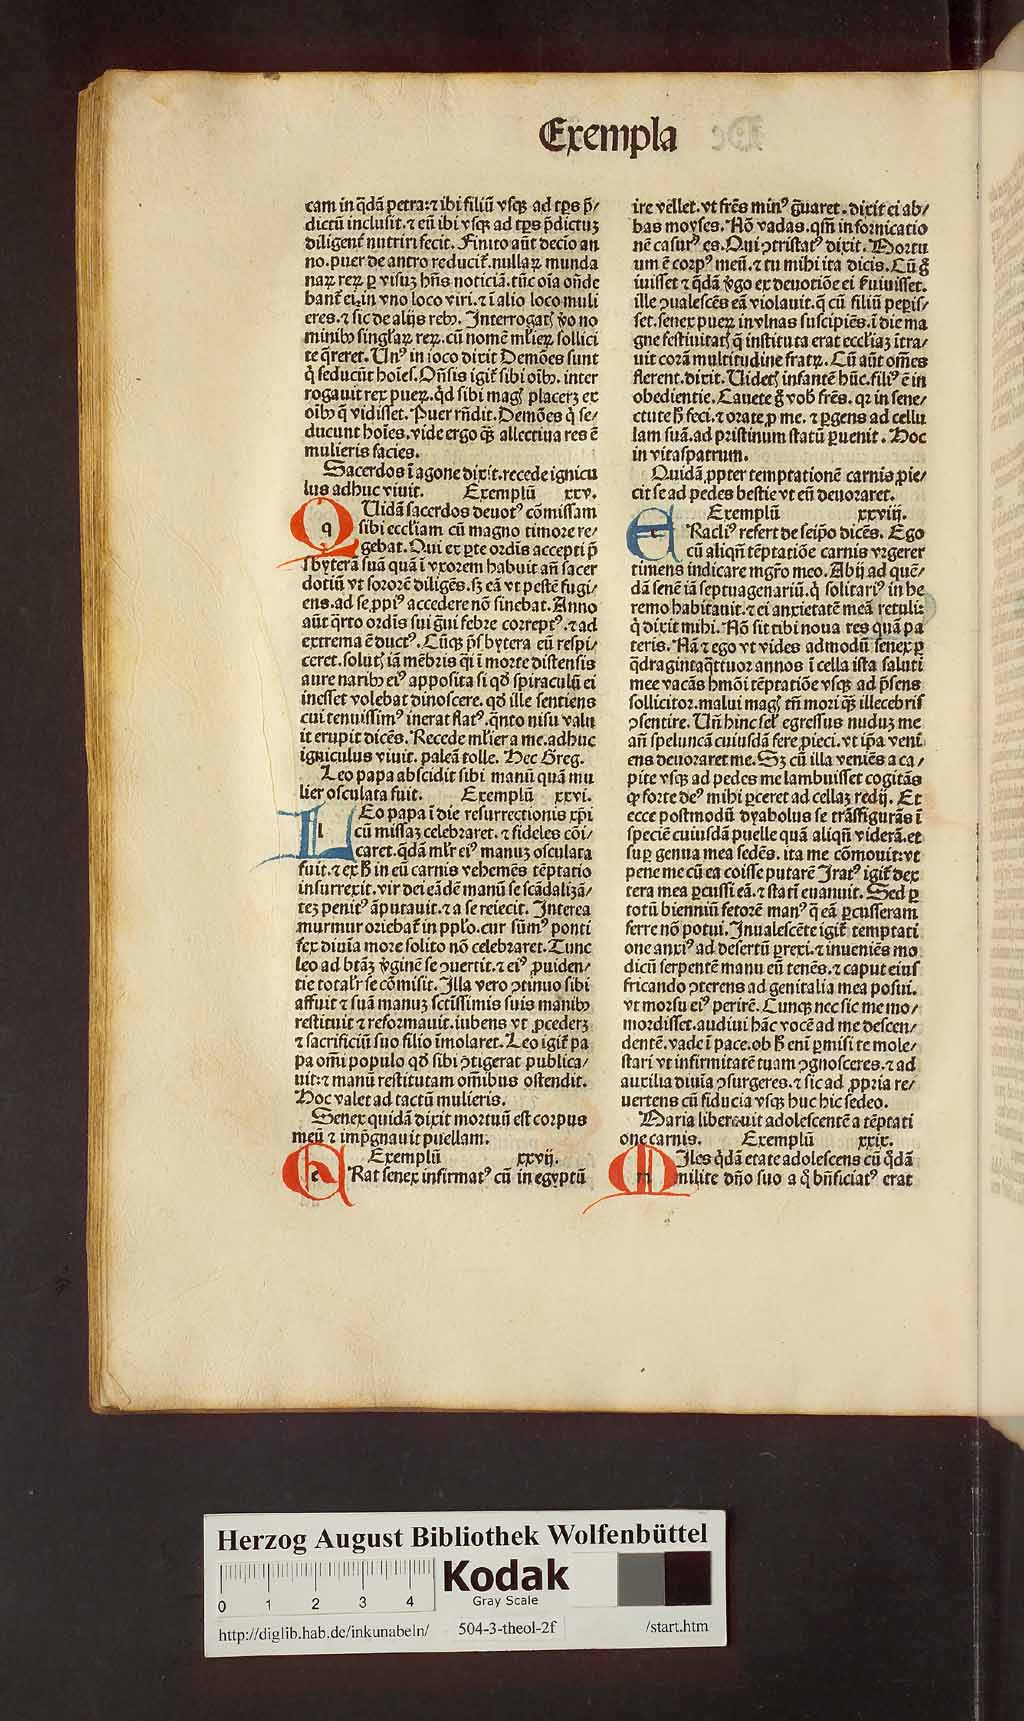 Exempla
cam in q̄dā petra: ⁊ ibi filiū vsq̨ ad tp̄s p̄/
dictū inclusit. ⁊ eū ibi vsq̨ ad tp̄s p̄dictuꝫ
diligent̄ nutriri fecit. Finito aūt decio an
no. puer de antro reducit̄. nullaꝝ munda
naꝝ reꝝ ꝑ visuꝫ hn̄s noticiā. tūc oīa onde
bant̄ ei. in vno loco viri. ⁊ ī alio loco muli
eres. ⁊ sic de alijs rebꝰ. Interrogatꝭ v̄o no
minibꝰ singl'aꝝ reꝝ. cū nomē ml'ieꝝ sollici
te q̄reret. Vnꝰ in ioco dixit Demōes sunt
q̇ seducūt hoīes. Oñsis igit̄ sibi oībꝰ. inter
rogauit rex pueꝝ. qd̄ sibi magꝭ placerꝫ ex
oībꝰ q̄ vidisset. Puer rn̄dit. Demōes q̇ se/
ducunt hoīes. vide ergo qꝫ̄ allectiua res ē
mulieris facies.
Sacerdos ī agone dixit. recede ignicu
lus adhuc viuit. Exemplū xxv.
Q q Uidā sacerdos deuotꝰ cōmissam
sibi eccl'iam cū magno timore re/
gebat. Qui ex ꝑte ordis accepti p̄
sbyterā suā quā ī vxorem habuit an̄ sacer
dotiū vt sororē diligēs. sꝫ eā vt pestē fugi/
ens. ad se ꝓpiꝰ accedere nō sinebat. Anno
aūt q̄rto ordis sui g̃ui febre correptꝰ. ⁊ ad
extrema ē ductꝰ. Cūq̨ p̄sbytera eū respi/
ceret. solutꝭ iā mēbris q̄i ī morte distensis
aure naribꝰ eiꝰ apposita si qd̄ spiraculū ei
inesset volebat dinoscere. qd̄ ille sentiens
cui tenuissimꝰ inerat flatꝰ. q̄nto nisu valu
it erupit dicēs. Recede ml'ier a me. adhuc
igniculus viuit. paleā tolle. Hec Greg.
Leo papa abscidit sibi manū quā mu
lier osculata fuit. Exemplū xxvi.
L l Eo papa ī die resurrectionis xp̄i
cū missaꝫ celebraret. ⁊ fideles cōi/
caret. q̄dā ml'r eiꝰ manuꝫ osculata
fuit. ⁊ ex ħ in eū carnis vehemēs tēptatio
insurrexit. vir dei eādē manū se scādalizā/
teꝫ penitꝰ āputauit. ⁊ a se reiecit. Interea
murmur oriebat̄ in pplo. cur sūmꝰ ponti
fex diuia more solito nō celebraret. Tunc
leo ad btāꝫ v̄ginē se ꝯuertit. ⁊ eiꝰ ꝓuiden/
tie total'r se cōmisit. Illa vero ꝯtinuo sibi
affuit ⁊ suā manuꝫ sctīssimis suis manibꝰ
restituit ⁊ reformauit. iubens vt ꝓcederꝫ
⁊ sacrificiū suo filio īmolaret. Leo igit̄ pa
pa om̄i populo qd̄ sibi ꝯtigerat publica/
uit: ⁊ manū restitutam om̄ibus ostendit.
Hoc valet ad tactū mulieris.
Senex quidā dixit mortuū est corpus
meū ⁊ imp̄gnauit puellam.
Exemplū xxvij.
E e Rat senex infirmatꝰ cū in egyptū
ire vellet. vt fr̄es minꝰ g̃uaret. dixit ei ab/
bas moyses. Nō vadas. qm̄ in fornicatio
nē casurꝰ es. Qui ꝯtristatꝰ dixit. Mortu
um ē corpꝰ meū. ⁊ tu mihi ita dicis. Cū g̊
iuisset ⁊ q̄dā v̄go ex deuotiōe ei ẜuiuisset.
ille ꝯualescēs eā violauit. q̄ cū filiū peꝑis/
set. senex pueꝝ in vlnas suscipiēs. ī die ma
gne festiuitatꝭ q̄ instituta erat eccl'iaꝫ ītra/
uit corā multitudine fratꝝ. Cū aūt om̄es
flerent. dixit. Uidetꝭ infantē hūc. filiꝰ ē in
obedientie. Cauete g̊ vobꝭ fr̄es. qꝛ in sene/
ctute ħ feci. ⁊ orate ꝓ me. ⁊ ꝑgens ad cellu
lam suā. ad pristinum statū ꝑuenit. Hoc
in vitaspatrum.
Quidā ꝓpter temptationē carnis ꝓie/
cit se ad pedes bestie vt eū deuoraret.
Exemplū xxviij.
E e Racliꝰ refert de seip̄o dicēs. Ego
cū aliqn̄ tēptatiōe carnis vrgerer
timens indicare mgr̄o meo. Abij ad quē/
dā senē iā septuagenariū. q̇ solitariꝰ in he
remo habitauit. ⁊ ei anxietatē meā retuli:
q̇ dixit mihi. Nō sit tibi noua res quā pa
teris. Nā ⁊ ego vt vides admodū senex ꝑ
q̄dragintaq̄ttuor annos ī cella ista saluti
mee vacās hmōi tēptatiōe vsq̨ ad p̄sens
sollicitoꝛ. malui magꝭ tn̄ mori qꝫ̄ illecebris
ꝯsentire. Un̄ hinc sel' egressus nuduꝫ me
an̄ speluncā cuiusdā fere ꝓieci. vt ip̄a veni
ens deuoraret me. Sꝫ cū illa veniēs a ca/
pite vsq̨ ad pedes me lambuisset cogitās
ꝙ forte deꝰ mihi ꝑceret ad cellaꝫ redij. Et
ecce postmodū dyabolus se trāsfigurās ī
speciē cuiusdā puelle quā aliqn̄ viderā. et
suꝑ genua mea sedēs. ita me cōmouit: vt
pene me cū ea coisse putarē Iratꝰ igit̄ dex
tera mea ꝑcussi eā. ⁊ statī euanuit. Sed ꝑ
totū bienniū fetorē manꝰ q̄ eā ꝑcusseram
ferre nō potui. Inualescēte igit̄ temptati
one anxiꝰ ad desertū ꝑrexi. ⁊ inueniēs mo
dicū serpentē manu eū tenēs. ⁊ caput eius
fricando ꝯterens ad genitalia mea posui.
vt morsu eiꝰ perirē. Cunq̨ nec sic me mo/
mordisset. audiui hāc vocē ad me descen/
dentē. vade ī pace. ob ħ eni ꝑmisi te mole/
stari vt infirmitatē tuam ꝯgnosceres. ⁊ ad
auxilia diuia ꝯsurgeres. ⁊ sic ad ꝓpria re/
uertens cū fiducia vsq̨ huc hic sedeo.
Maria liberauit adolescentē a tēptati
one carnis. Exemplū xxix.
M m Iles q̄dā etate adolescens cū q̄dā
milite dn̄o suo a q̇ bn̄ficiatꝰ erat
Herzog August Bibliothek Wolfenbüttel
0 1 2 3 4
Kodak
Gray Scale
http://diglib.hab.de/inkunabeln/ 504-3-theol-2f /start.htm